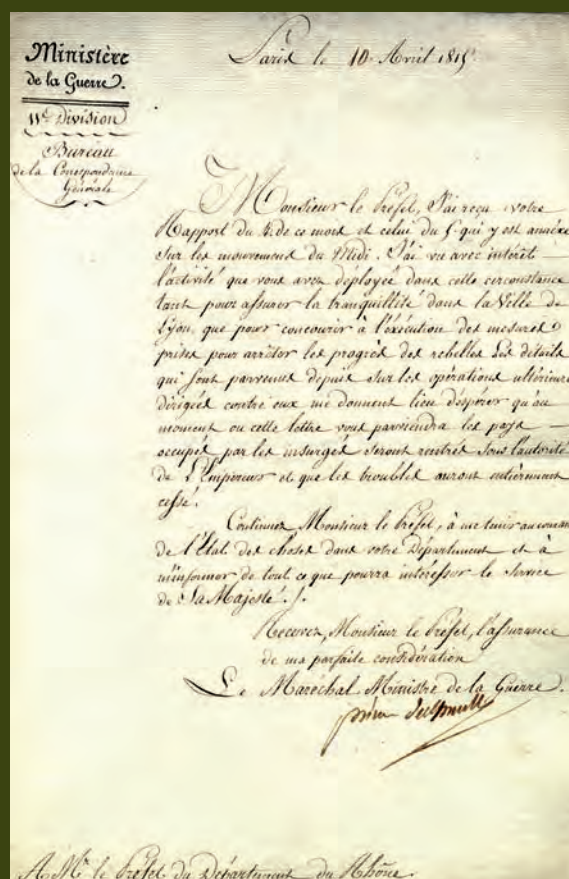 Ministère
de la Guerre.
11e. Division
Bureau
de la Correspondance
Générale
Paris le 10. Avril 1815.
Monsieur le Préfet, J'ai reçu votre
Rapport du 4. de ce mois et celui du 5. qui y est annéxé
sur les mouvemens du Midi. J'ai vu avec intérêt
l'activité que vous avez déployée dans cette circonstance
tant pour assurer la tranquillité dans la Ville de
Lyon, que pour concourir à l'éxécution des mesures
prises pour arrêter les progrès des rebelles. Les détails
qui sont parvenus depuis sur les opérations ultérieures
dirigées contre eux me donnent lieu d'espérer qu'au
moment ou cette lettre vous parviendra les pays
occupés par les insurgés seront rentrés sous l'autorité
de L'Empereur et que les troubles auront entièrement
cessé.
Continuez Monsieur le Préfet, à me tenir au courant
de l'État des choses dans votre Département et à
m'informer de tout ce que pourra intéresser le service
de Sa Majesté./.
Recevez, Monsieur le Préfet, l'assurance
de ma parfaite considération
Le Maréchal Ministre de la Guerre.
A Mr. le Préfet du Département du Rhône.